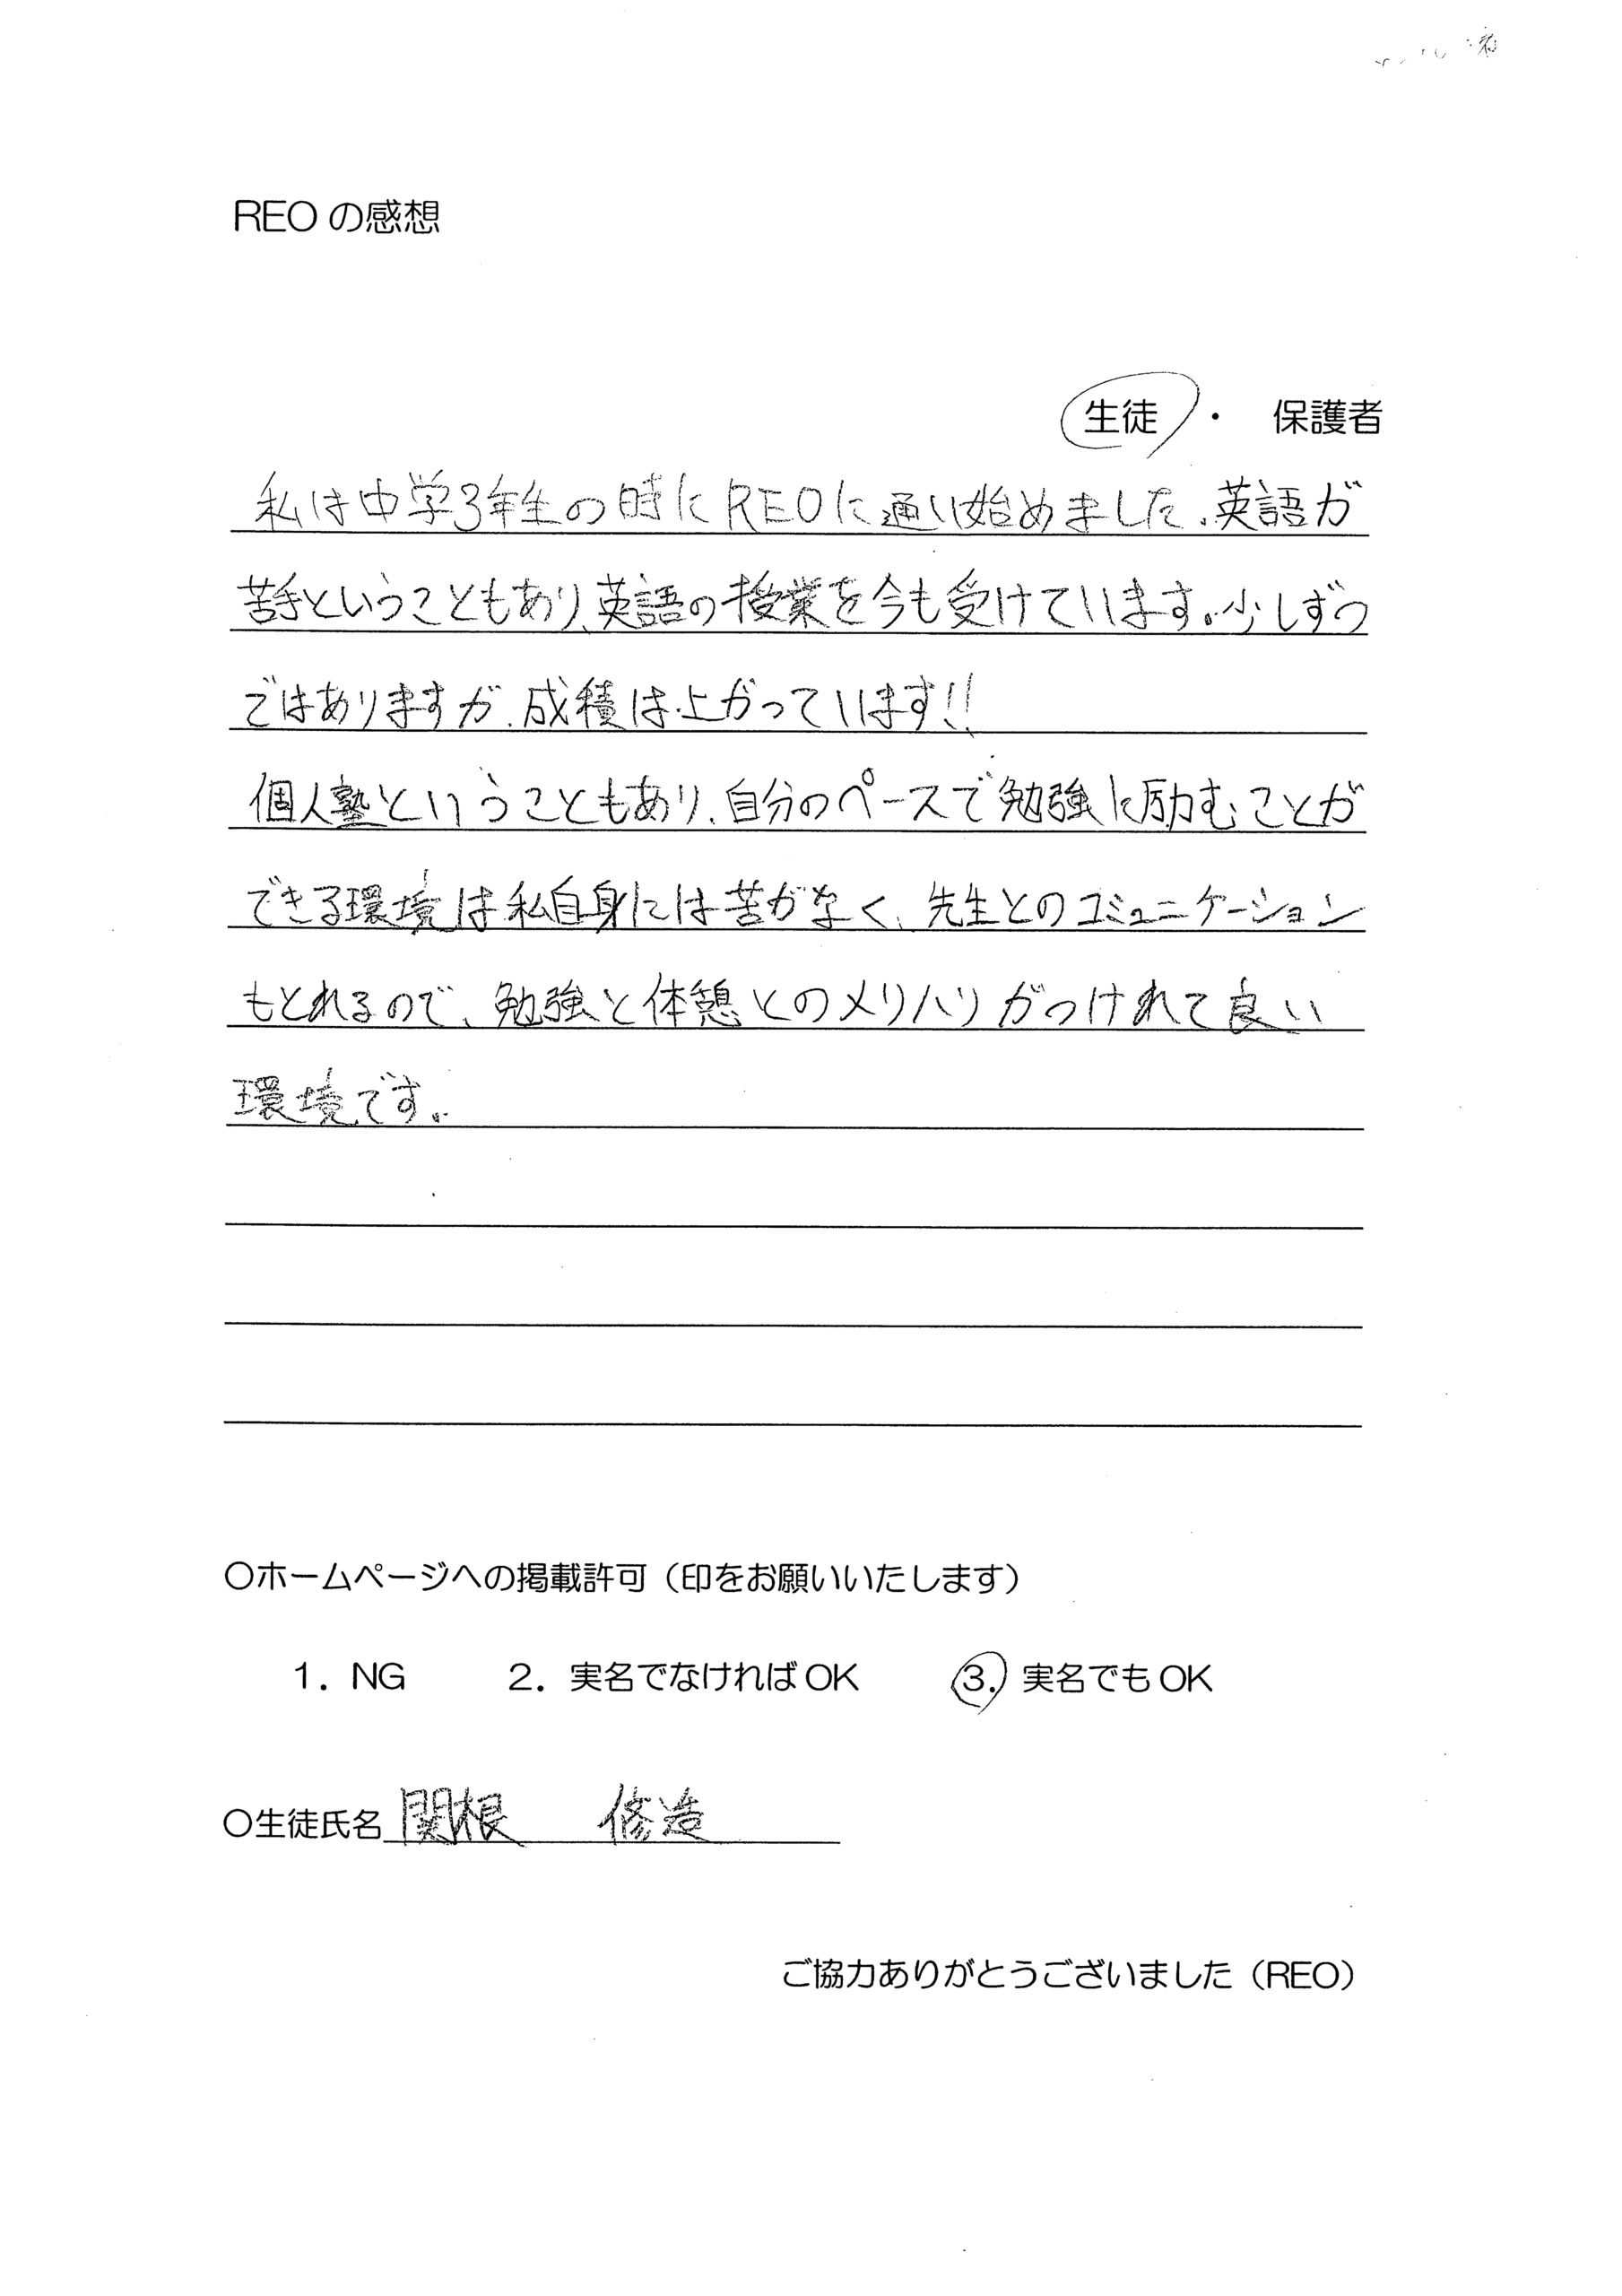 REOの感想
生徒 ・ 保護者
私は中学3年生の時にREOに通い始めました。英語が
苦手ということもあり、英語の授業を今も受けています。少しずつ
ではありますが、成積は上がっています!!
個人塾ということもあり、自分のペースで勉強に励むことが
できる環境は私自身には苦がなく、先生とのコミュニケーション
もとれるので、勉強と体憩とのメリハリがつけれて良い
環境です。
〇ホームページへの掲載許可（印をお願いいたします）
1. NG 2. 実名でなければOK 3. 実名でもOK
〇生徒氏名 関根 修造
ご協力ありがとうございました（REO）